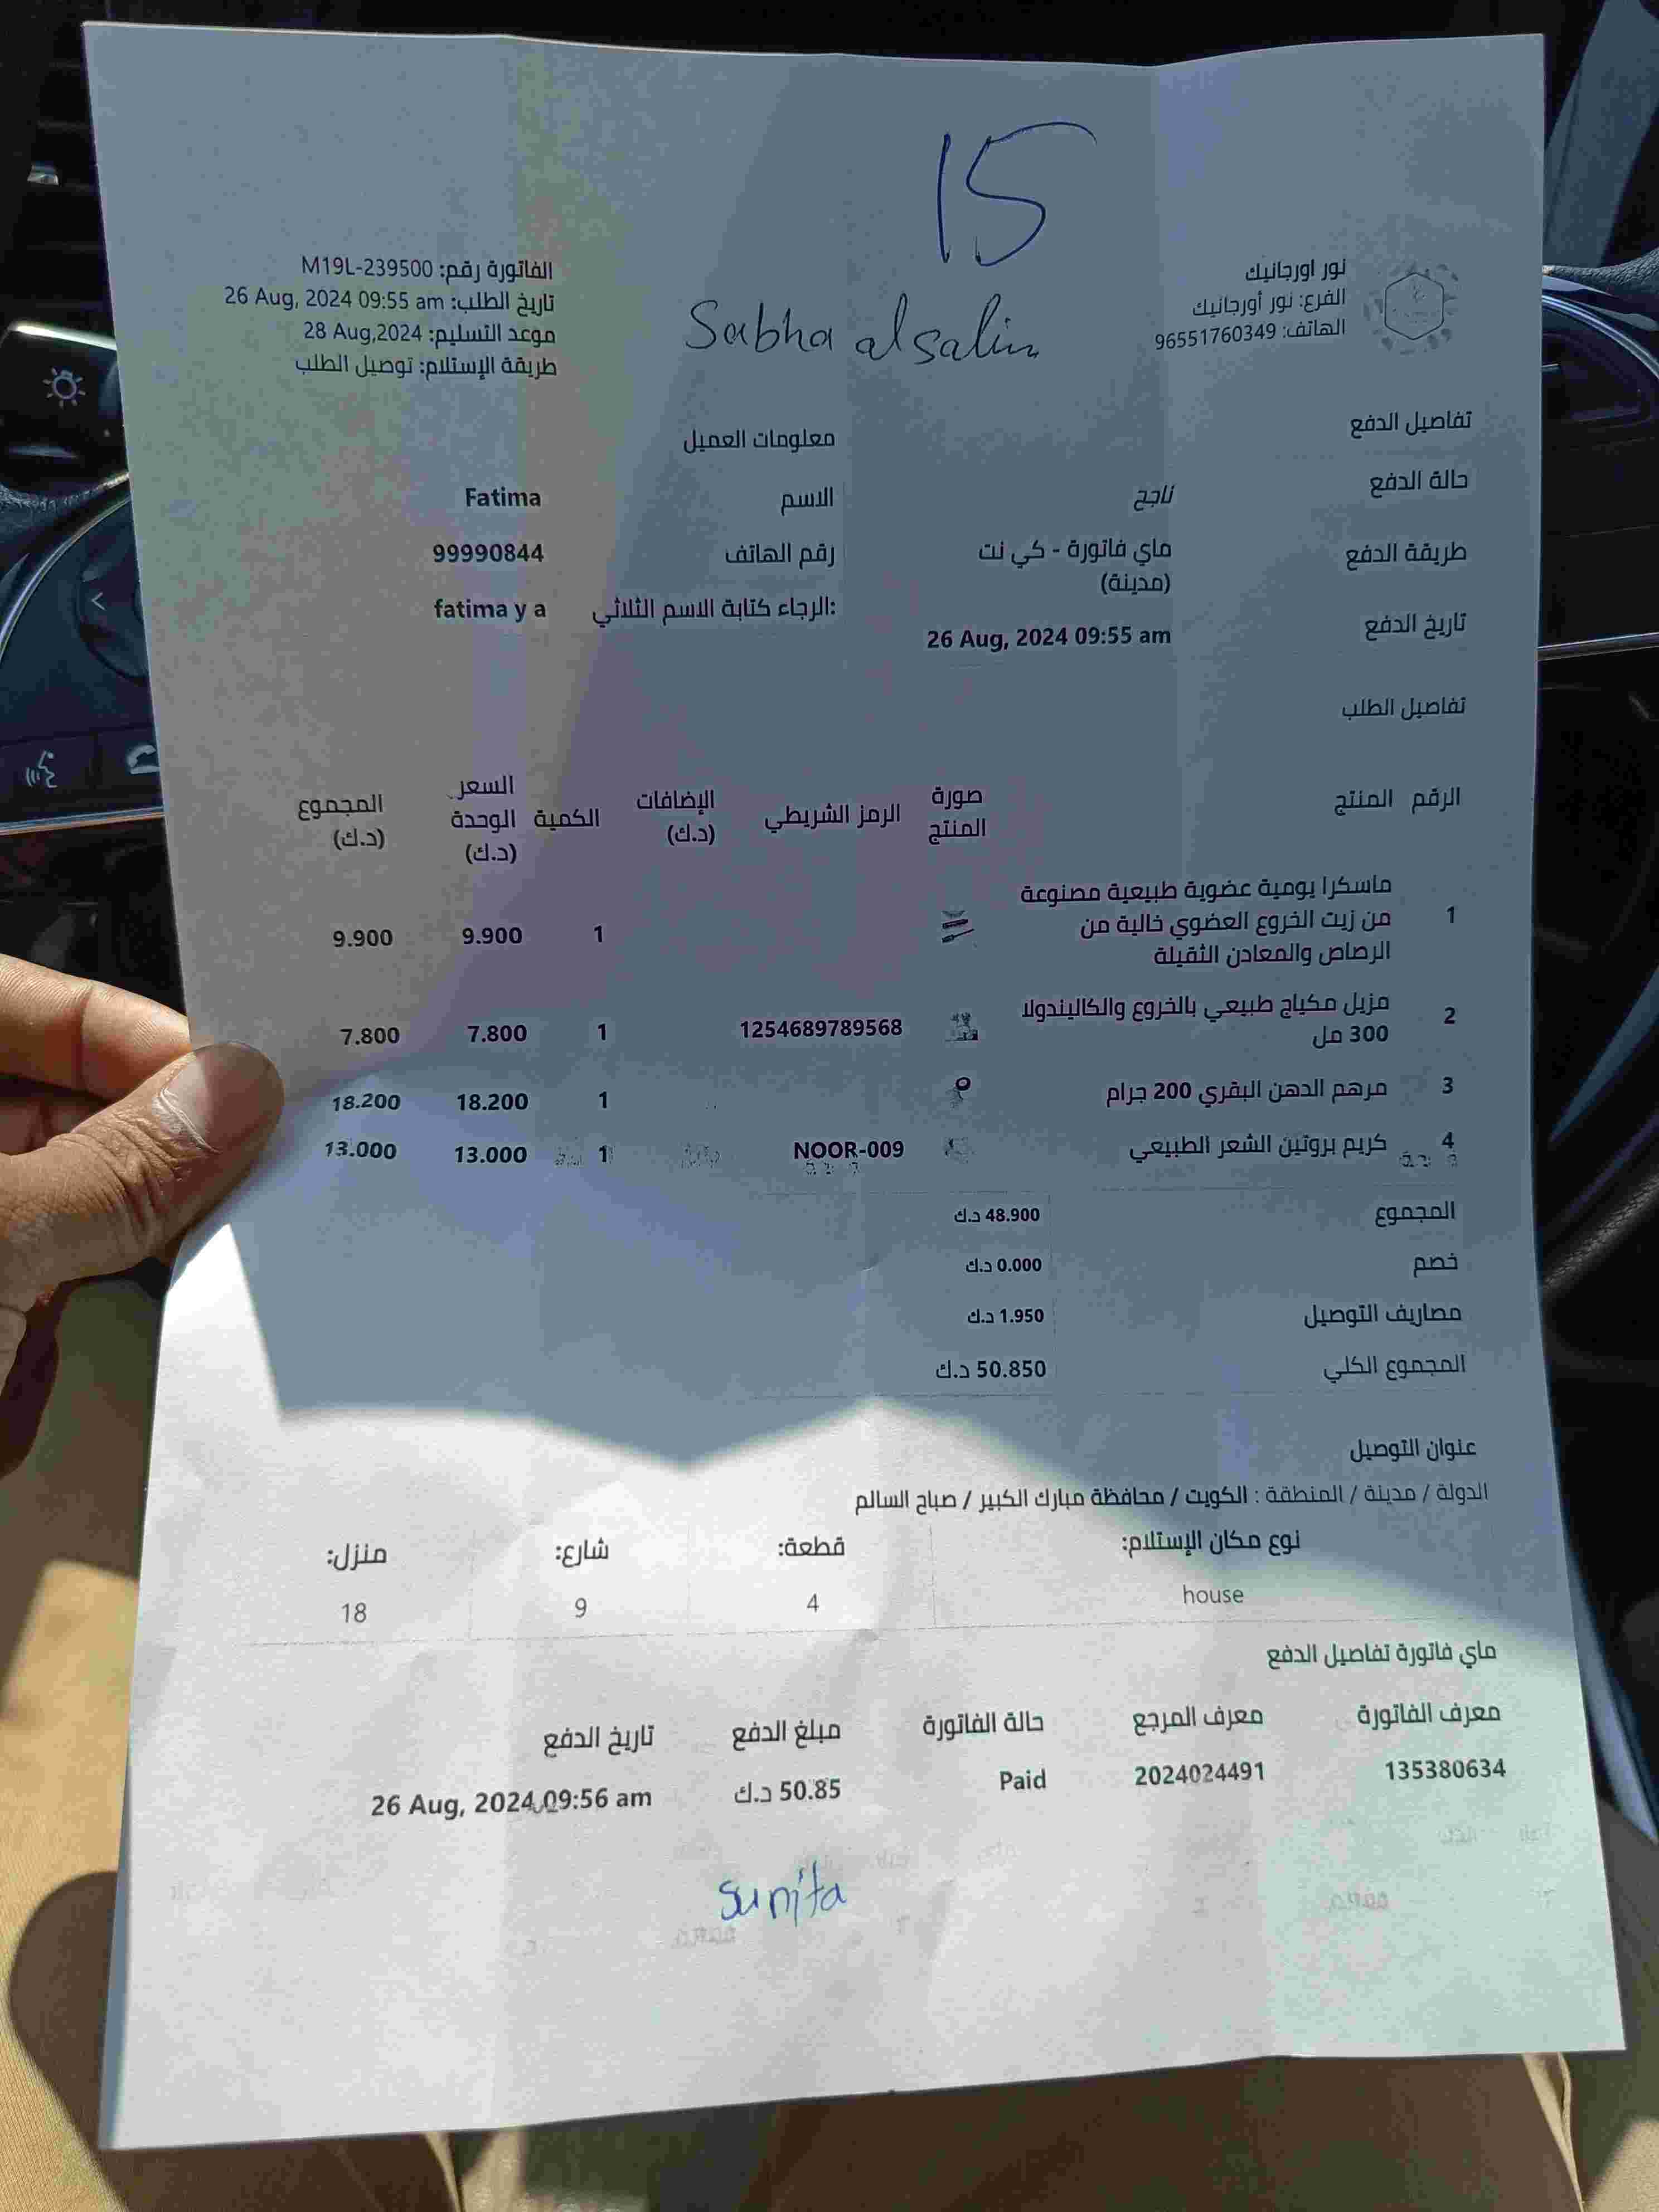 15
Sabha alsalim
نور اورجانيك
الفرع: نور أورجانيك
الهاتف: 96551760349
الفاتورة رقم: M19L-239500
تاريخ الطلب: 26 Aug, 2024 09:55 am
موعد التسليم: 28 Aug,2024
طريقة الإستلام: توصيل الطلب
تفاصيل الدفع
حالة الدفع ناجح
طريقة الدفع ماي فاتورة - كي نت
(مدينة)
تاريخ الدفع 26 Aug, 2024 09:55 am
معلومات العميل
الاسم Fatima
رقم الهاتف 99990844
الرجاء كتابة الاسم الثلاثي: fatima y a
تفاصيل الطلب
الرقم المنتج صورة المنتج الرمز الشريطي الإضافات (د.ك) الكمية السعر الوحدة (د.ك) المجموع (د.ك)
1 ماسكرا يومية عضوية طبيعية مصنوعة
من زيت الخروع العضوي خالية من 1 9.900 9.900
الرصاص والمعادن الثقيلة
2 مزيل مكياج طبيعي بالخروع والكاليندولا 1254689789568 1 7.800 7.800
300 مل
3 مرهم الدهن البقري 200 جرام 1 18.200 18.200
4 كريم بروتين الشعر الطبيعي NOOR-009 1 13.000 13.000
المجموع 48.900 د.ك
خصم 0.000 د.ك
مصاريف التوصيل 1.950 د.ك
المجموع الكلي 50.850 د.ك
عنوان التوصيل
الدولة / مدينة / المنطقة : الكويت / محافظة مبارك الكبير / صباح السالم
نوع مكان الإستلام: قطعة: شارع: منزل:
house 4 9 18
ماي فاتورة تفاصيل الدفع
معرف الفاتورة معرف المرجع حالة الفاتورة مبلغ الدفع تاريخ الدفع
135380634 2024024491 Paid 50.85 د.ك 26 Aug, 2024 09:56 am
sunita